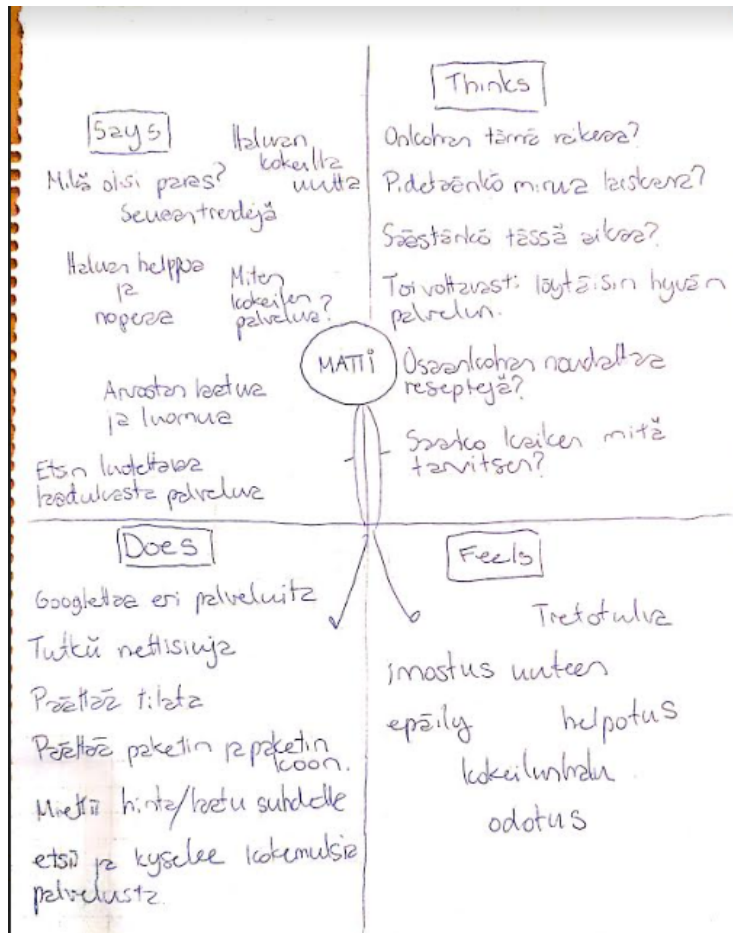 Says
Haluan
kokeilla
uutta
Mikä olisi paras?
Seuraan trendejä
Haluan helppoa
ja
nopeaa
Miten
kokeilen
palvelua?
Arvostan laatua
ja luomua
Etsin luotettavaa
laadukasta palvelua
Thinks
Onkohan tämä vaikeaa?
Pidetäänkö minua laiskana?
Säästänkö tässä aikaa?
Toivottavasti löytäisin hyvän
palvelun.
MATTI
Osaankohan noudattaa
reseptejä?
Saanko kaiken mitä
tarvitsen?
Does
Googlettaa eri palveluita
Tutkii nettisivuja
Päättää tilata
Päättää paketin ja paketin
koon.
Miettii hinta/laatu suhdetta
etsii ja kyselee kokemuksia
palvelusta
Feels
Tietotulva
innostus uuteen
epäily
helpotus
kokeilunhalu
odotus